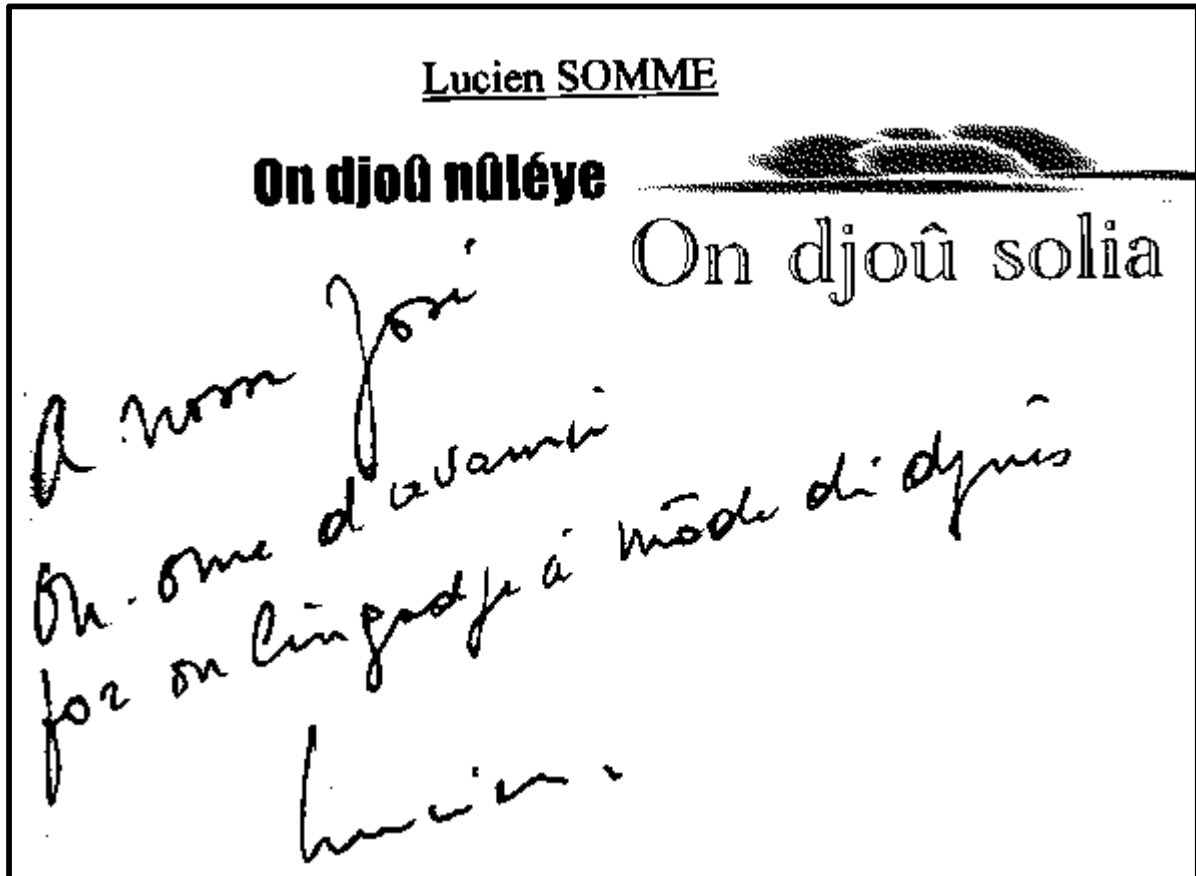 Lucien SOMME
On djoû nûléye
On djoû solia
A noss José
On-ome d'avanci
for on lingadje à môde di djins
Lucien.